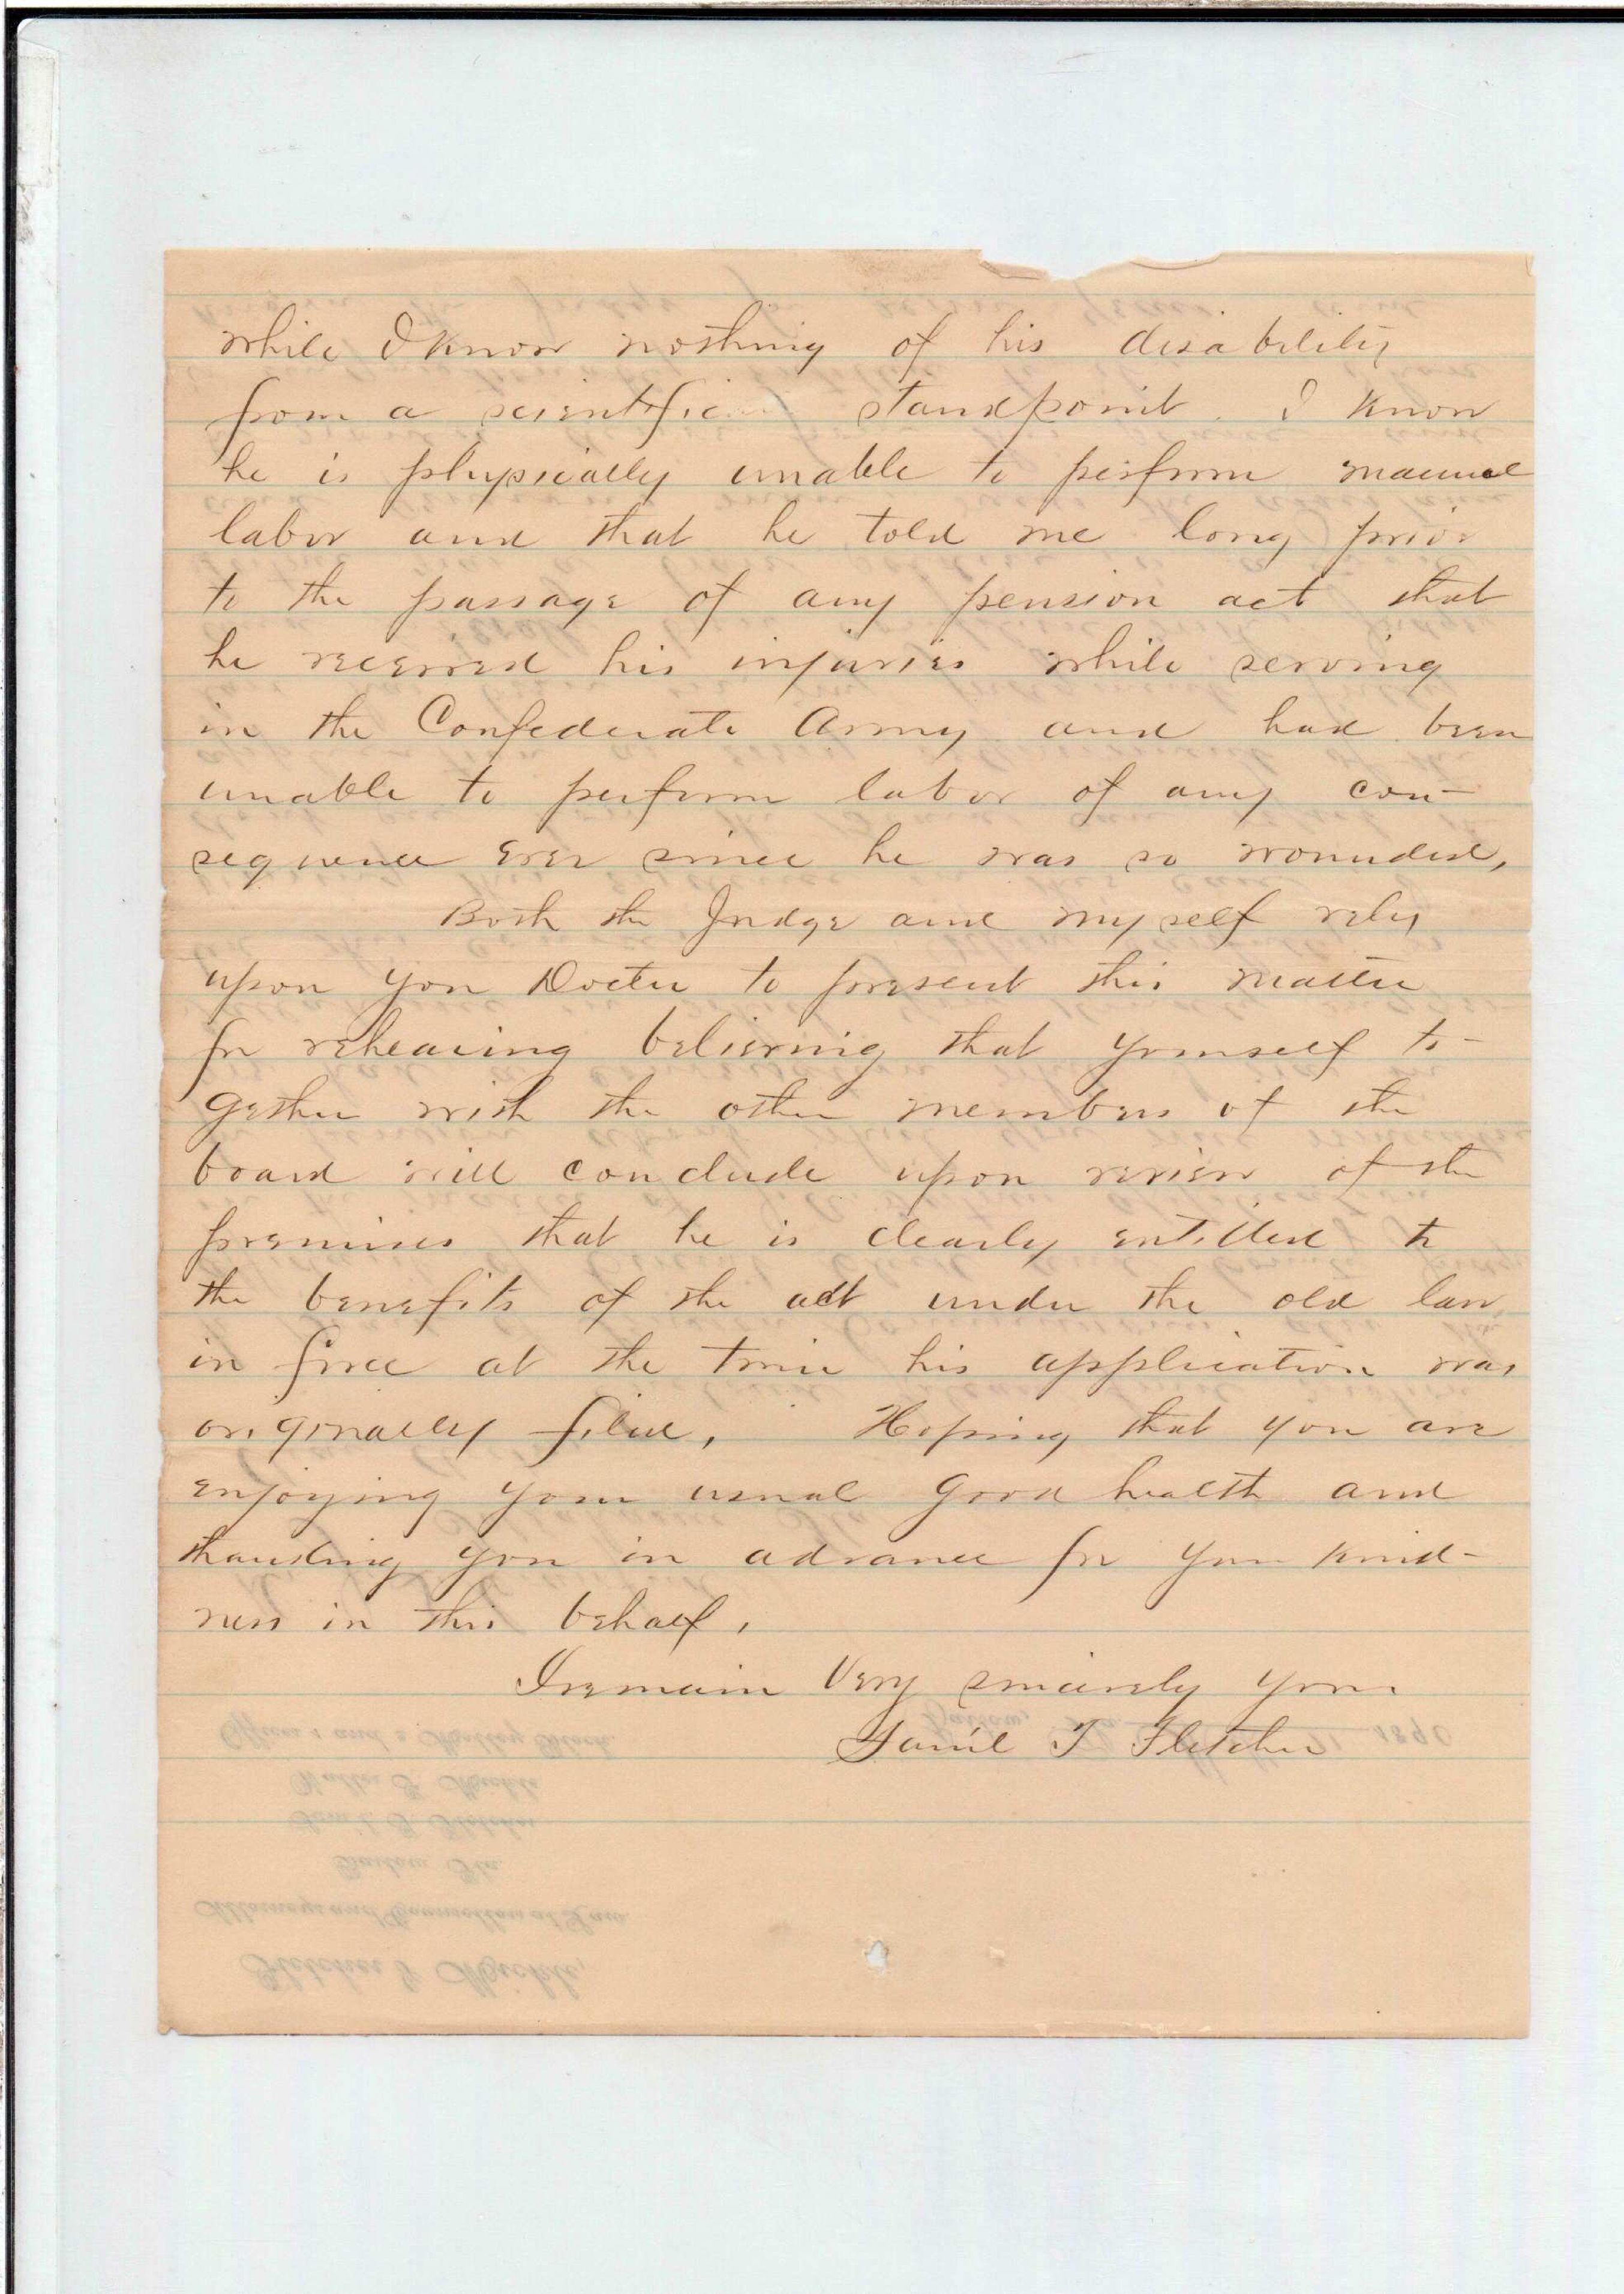 while I know nothing of his disability
from a scientific standpoint. I know
he is physically unable to perform manual
labor and that he told me long prior
to the passage of any pension act that
he received his injuries while serving
in the Confederate Army and had been
unable to perform labor of any con-
sequence ever since he was so wounded,
Both the Judge and myself rely
upon you Doctor to present this matter
for rehearing believing that yourself to-
gether with the other members of the
board will conclude upon review of the
premises that he is clearly entitled to
the benefits of the act under the old law
in force at the time his application was
originally filed, Hoping that you are
enjoying your usual good health and
thanking you in advance for your kind-
ness in this behalf,
I remain Very sincerely yours
Sam'l T Fletcher